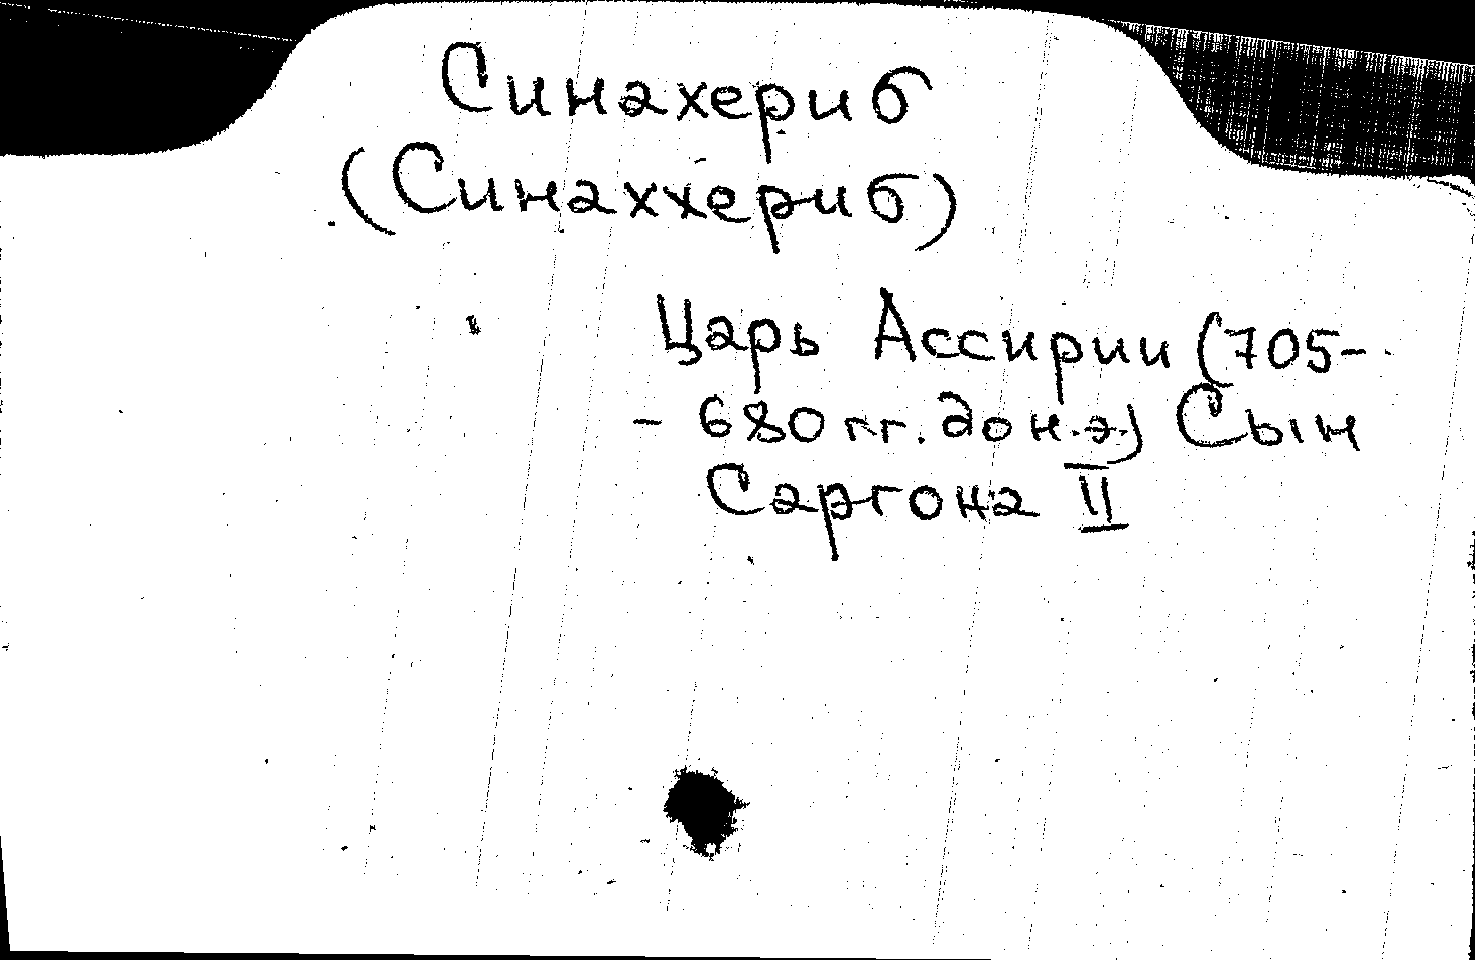 Синахериб
(Синаххериб)
Царь Ассирии (705-
- 680 гг. до н.э.) Сын
Саргона II